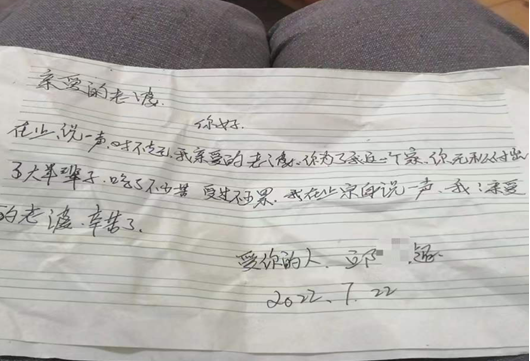 亲爱的老婆.
你好.
在此、说一声.对不起.我亲爱的老婆.你为了我这一个家.你无私付出
了大半辈子.吃了不少苦 受不累.我在此亲自说一声.我亲爱
的老婆.辛苦了.
爱你的人.邓
2022.7.22